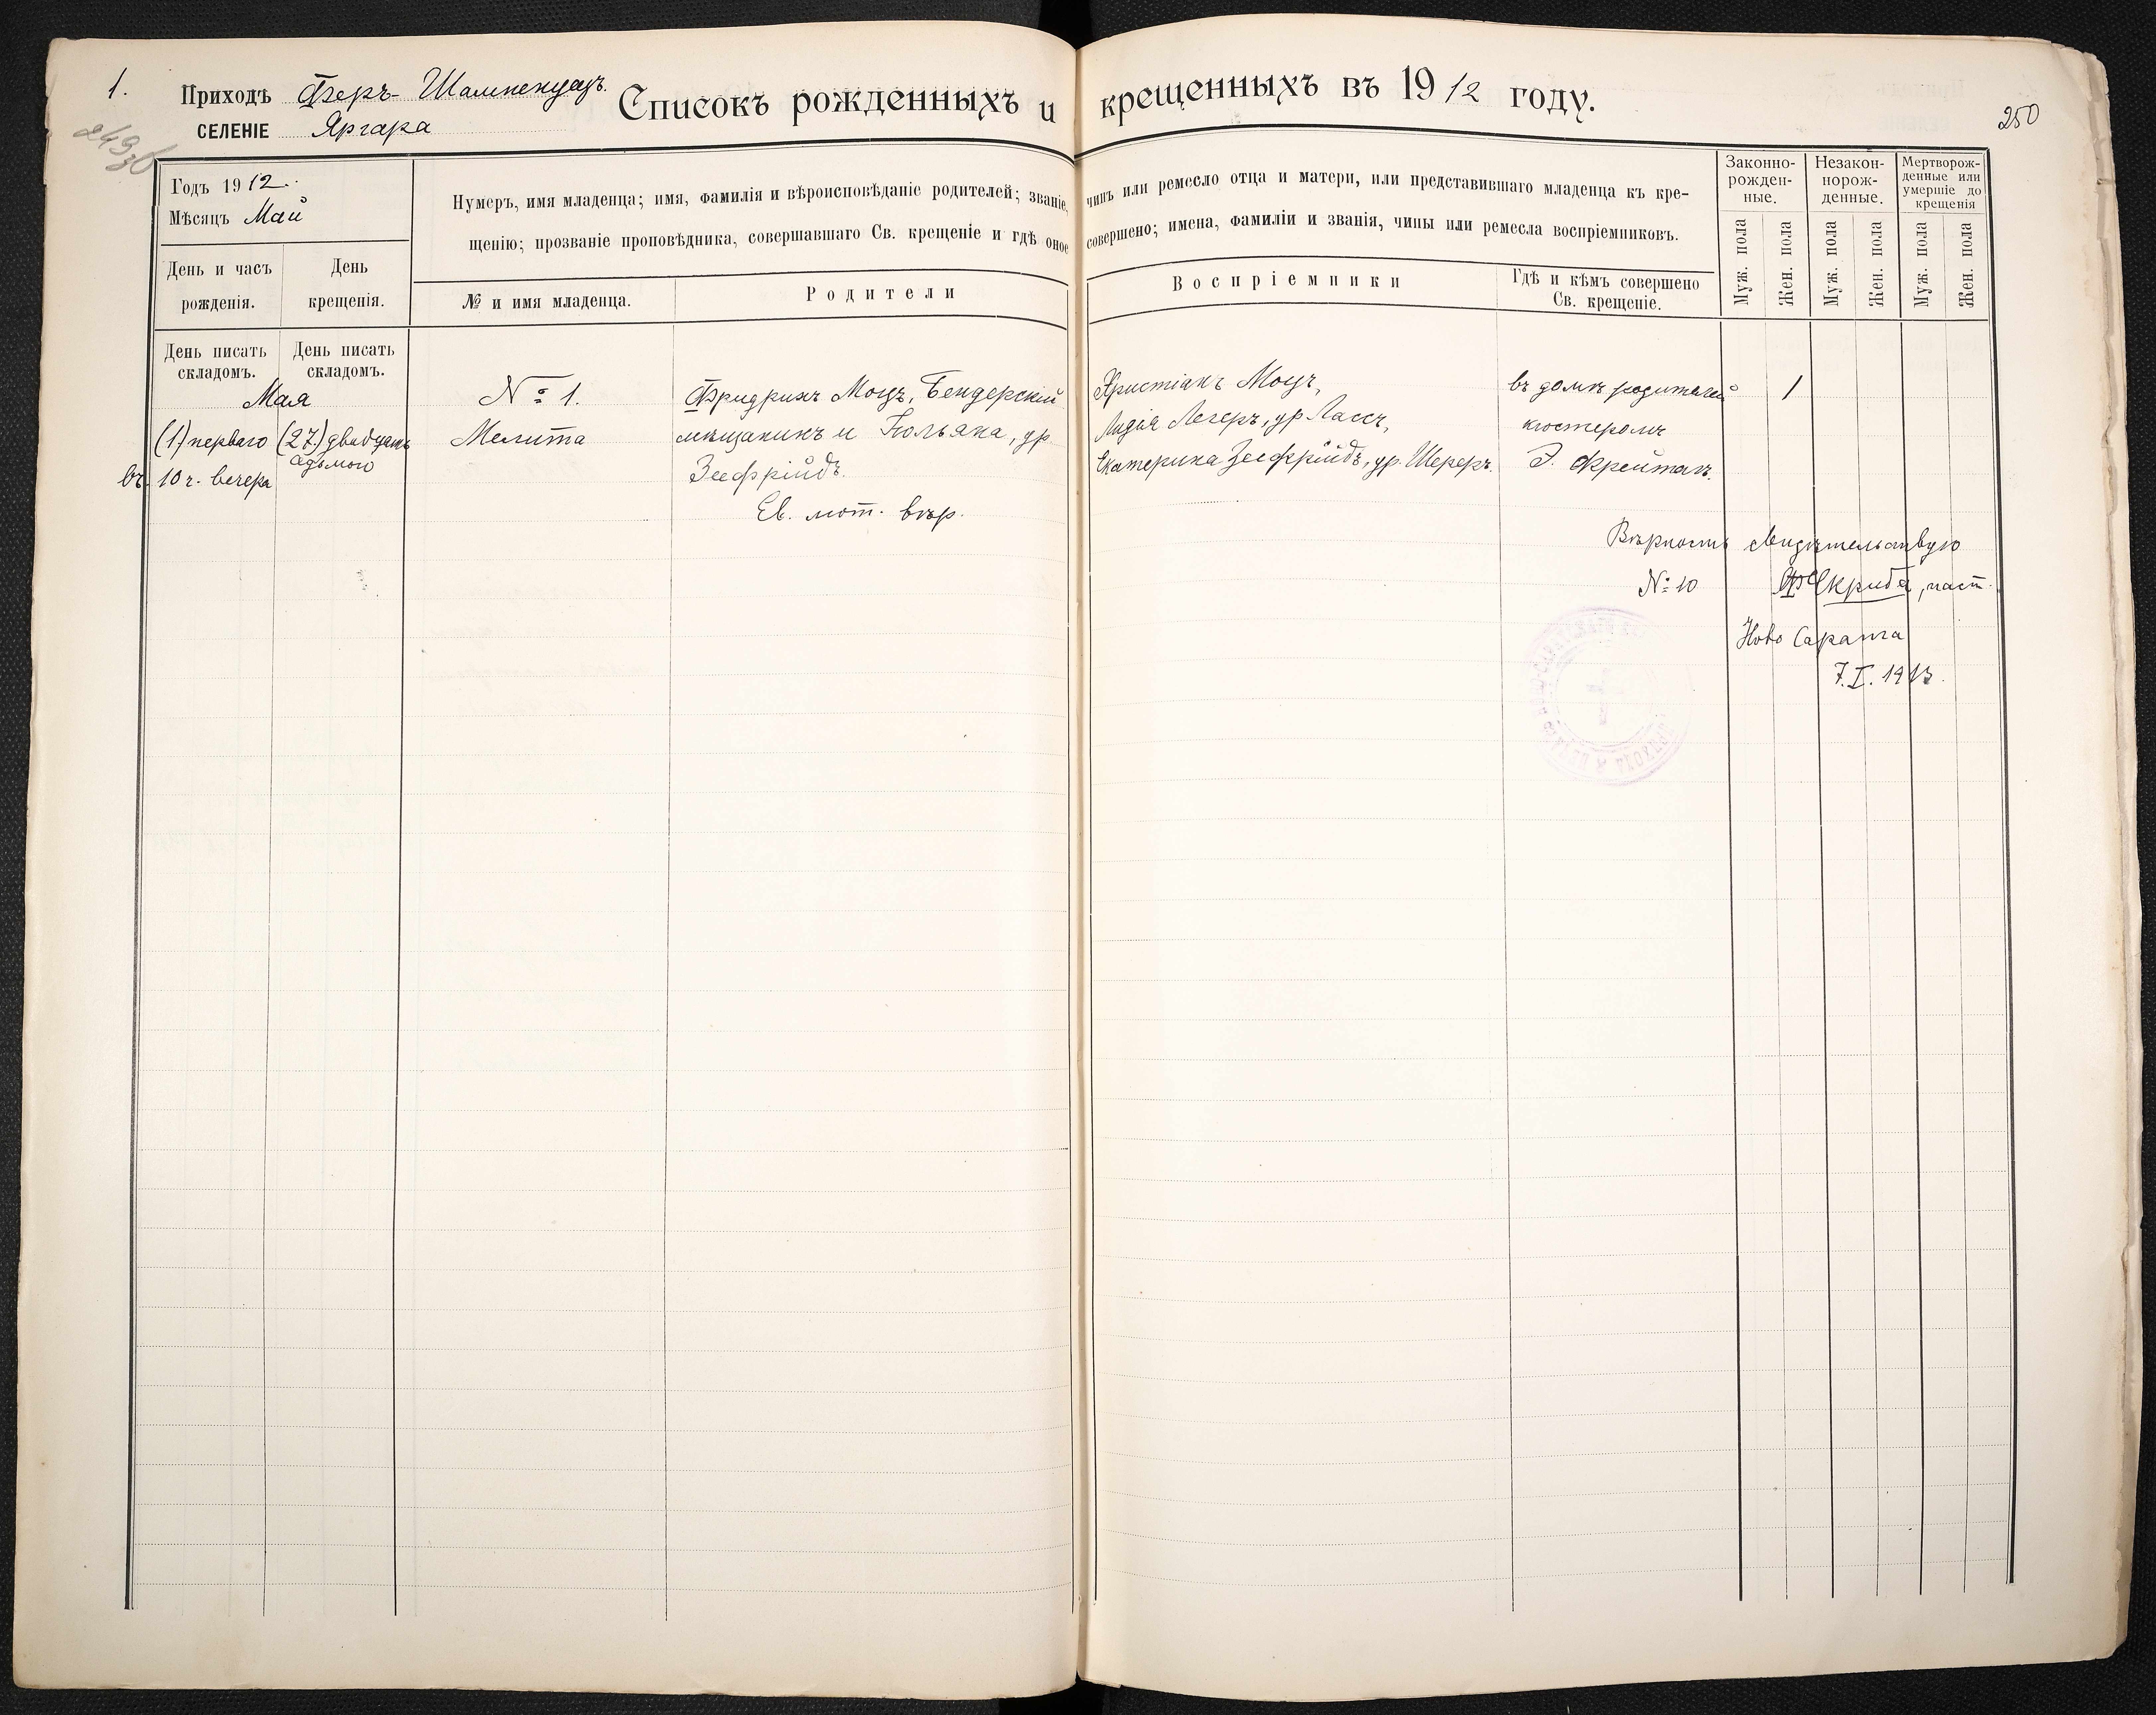 1.
Приходъ Феръ-Шампенуазъ.
СЕЛЕНІЕ Яргара
Списокъ рожденныхъ и крещенныхъ въ 1912 году.
250
249 об
Годъ 1912.
Мѣсяцъ Май
День и часъ рожденія.
День крещенія.
Нумеръ, имя младенца; имя, фамилія и вѣроисповѣданіе родителей; званіе, чинъ или ремесло отца и матери, или представившаго младенца къ кре-
щенію; прозваніе проповѣдника, совершавшаго Св. крещеніе и гдѣ оное совершено; имена, фамиліи и званія, чины или ремесла воспріемниковъ.
№ и имя младенца.
Родители
Воспріемники
Гдѣ и кѣмъ совершено
Св. крещеніе.
Законно-
рожден-
ные.
Незакон-
норож-
денные.
Мертворож-
денные или
умершіе до
крещенія
Муж. пола
Жен. пола
Муж. пола
Жен. пола
Муж. пола
Жен. пола
День писать
складомъ.
День писать
складомъ.
Мая
(1) перваго
въ 10 ч. вечера
(27.) двадцать
седьмого
№ 1.
Мелита
Фридрихъ Моцъ, Бендерскій
мѣщанинъ и Юльяна, ур.
Зеефрійдъ.
Ев. лют. вѣр.
Христіанъ Моцъ,
Лидія Легеръ, ур. Лассъ,
Екатерина Зеефрійдъ, ур. Шереръ.
въ домѣ родителей
кюстеромъ
Э. Фрейтагъ.
1
Вѣрность свидѣтельствую
№ 10
Скриба, паст.
Ново Сарата
7.I.1913.